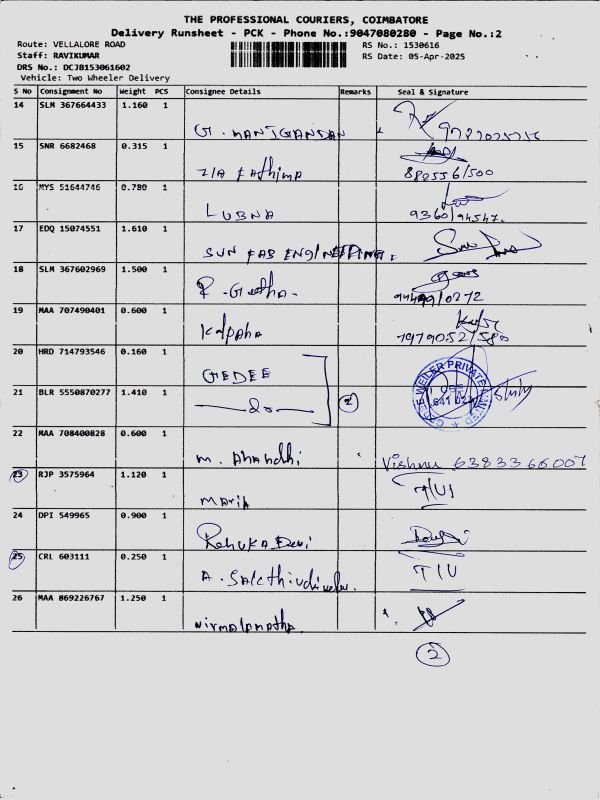 THE PROFESSIONAL COURIERS, COIMBATORE
Delivery Runsheet - PCK - Phone No.:9047080280 - Page No.:2
Route: VELLALORE ROAD
RS No.: 1530616
Staff: RAVIKUMAR
RS Date: 05-Apr-2025
DRS No.: DCJB153061602
Vehicle: Two Wheeler Delivery
S No Consignment No Weight PCS Consignee Details Remarks Seal & Signature
14 SLM 367664433 1.160 1
G. MANIGANDAN
15 SNR 6682468 0.315 1
Fathima
16 MYS 51644746 0.780 1
LUBNA
17 EDQ 15074551 1.610 1
SUN FAB ENGINEERING.
18 SLM 367602969 1.500 1
P. Geetha
19 MAA 707490401 0.600 1
Kalpana
20 HRD 714793546 0.160 1
GEDEE
21 BLR 5550870277 1.410 1
do
2
22 MAA 708400828 0.600 1
M. Anandhi
Vishnu 6383366007
23 RJP 3575964 1.120 1
Maria
24 DPI 549965 0.900 1
Renuka Devi
25 CRL 603111 0.250 1
A. Sakthivadivelu.
26 MAA 869226767 1.250 1
Nirmalamatha.
2